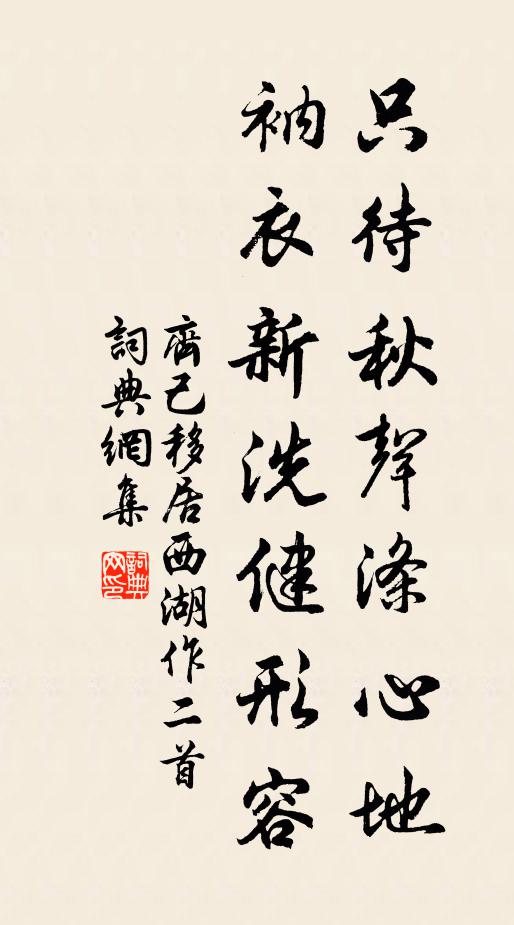 只待秋聲滌心地
衲衣新洗健形容
齊己移居西湖作二首
詞典網集
詞典网印